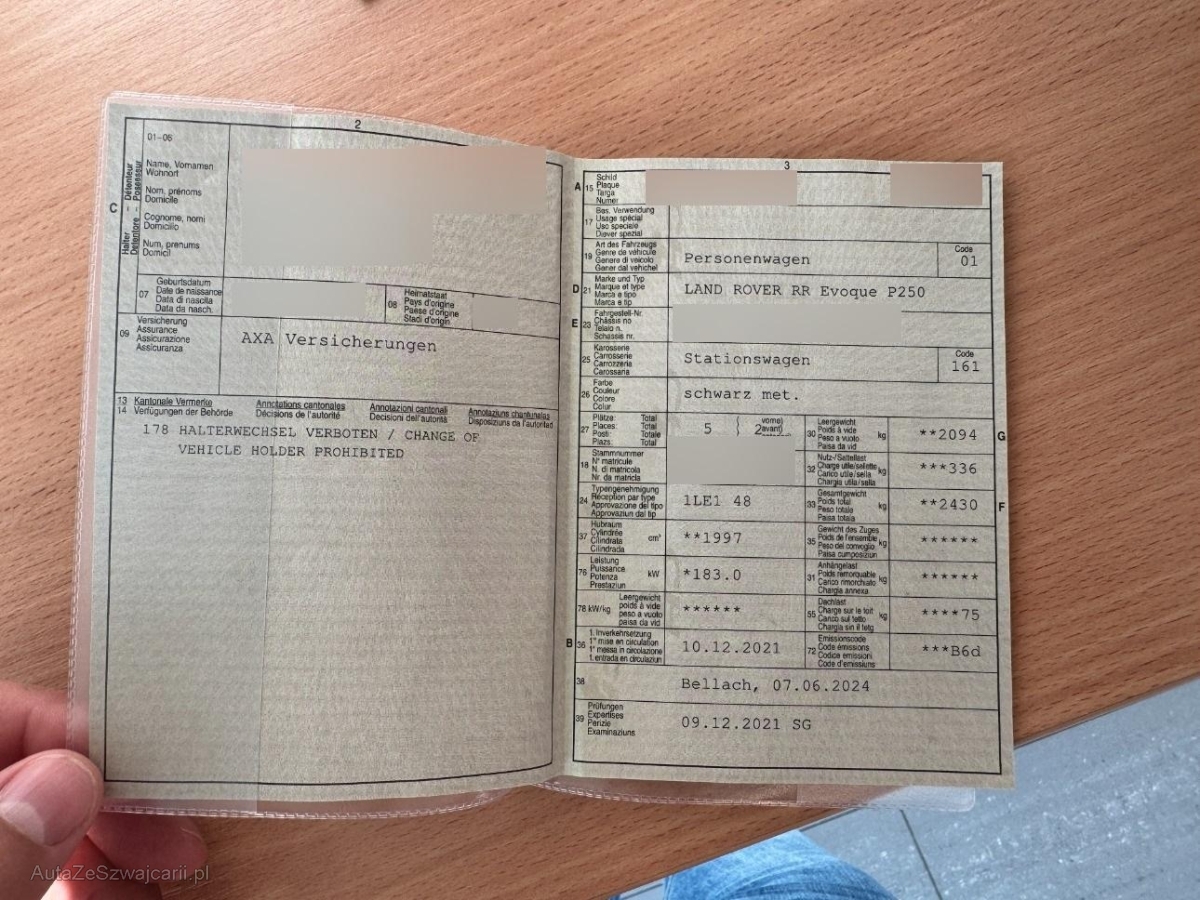 2
01-06
C
Halter – Détenteur
Detentore – Possessur
Name, Vornamen
Wohnort
Nom, prénoms
Domicile
Cognome, nomi
Domicilio
Num, prenums
Domicil
07
Geburtsdatum
Date de naissance
Data di nascita
Data da nasch.
08
Heimatstaat
Pays d'origine
Paese d'origine
Stadi d'origin
09
Versicherung
Assurance
Assicurazione
Assicuranza
AXA Versicherungen
13 Kantonale Vermerke Annotations cantonales Annotazioni cantonali Annotaziuns chantunalas
14 Verfügungen der Behörde Décisions de l'autorité Decisioni dell'autorità Disposiziuns da l'autoritad
178 HALTERWECHSEL VERBOTEN / CHANGE OF
VEHICLE HOLDER PROHIBITED
3
A
15
Schild
Plaque
Targa
Numer
17
Bes. Verwendung
Usage spécial
Uso speciale
Diever spezial
19
Art des Fahrzeugs
Genre de véhicule
Genere di veicolo
Gener dal vehichel
Personenwagen
Code
01
D
21
Marke und Typ
Marque et type
Marca e tipo
Marca e tip
LAND ROVER RR Evoque P250
E
23
Fahrgestell-Nr.
Châssis no
Telaio n.
Schassis nr.
25
Karosserie
Carrosserie
Carrozzeria
Carossaria
Stationswagen
Code
161
26
Farbe
Couleur
Colore
Colur
schwarz met.
27
Plätze Total
Places: Total
Posti: Totale
Plazs: Total
5
2
vorne)
avant)
30
Leergewicht
Poids à vide
Peso a vuoto
Paisa da vid
kg
**2094
G
18
Stammnummer
N° matricule
N. di matricola
Nr. da matricla
32
Nutz-/Sattellast
Charge utile/sellette
Carico utile/sella
Chargia utila/sella
kg
***336
24
Typengenehmigung
Réception par type
Approvazione del tipo
Approvaziun dal tip
1LE1 48
33
Gesamtgewicht
Poids total
Peso totale
Paisa totala
kg
**2430
F
37
Hubraum
Cylindrée
Cilindrata
Cilindrada
cm³
**1997
35
Gewicht des Zuges
Poids de l'ensemble
Peso del convoglio
Paisa cumposiziun
kg
******
76
Leistung
Puissance
Potenza
Prestaziun
kW
*183.0
31
Anhängelast
Poids remorquable
Carico rimorchiato
Chargia annexa
kg
******
78 kW/kg
Leergewicht
poids à vide
peso a vuoto
paisa da vid
******
55
Dachlast
Charge sur le toit
Carico sul tetto
Chargia sin il tetg
kg
****75
B
36
1. Inverkehrsetzung
1re mise en circulation
1a messa in circolazione
1. entrada en circulaziun
10.12.2021
72
Emissionscode
Code émissions
Codice emissioni
Code d'emissiuns
***B6d
38
Bellach, 07.06.2024
39
Prüfungen
Expertises
Perizie
Examinaziuns
09.12.2021 SG
AutaZeSzwajcarii.pl